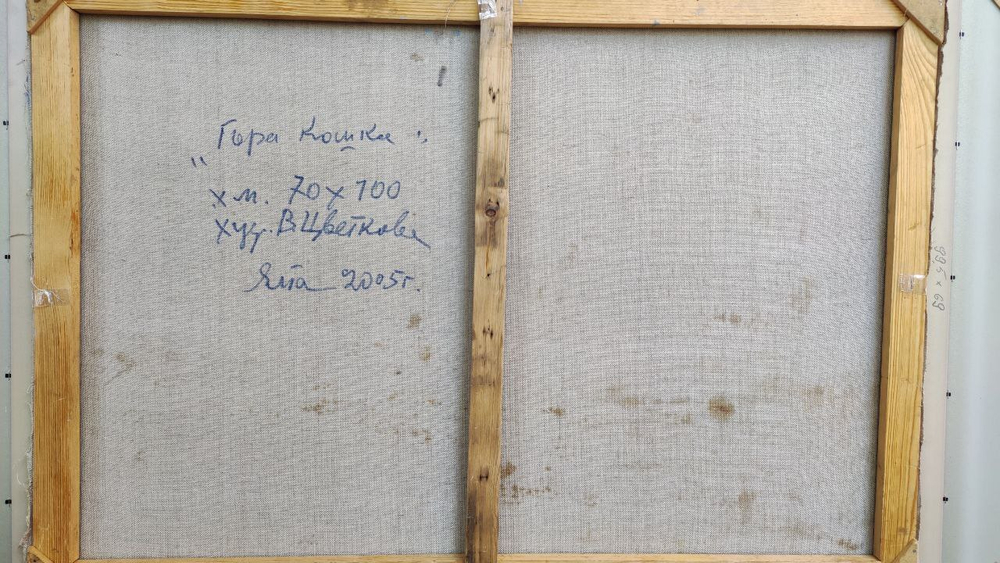 „Гора Кошка“.
х м. 70 х 100
худ. В. Цветкова
Ялта 2005г.